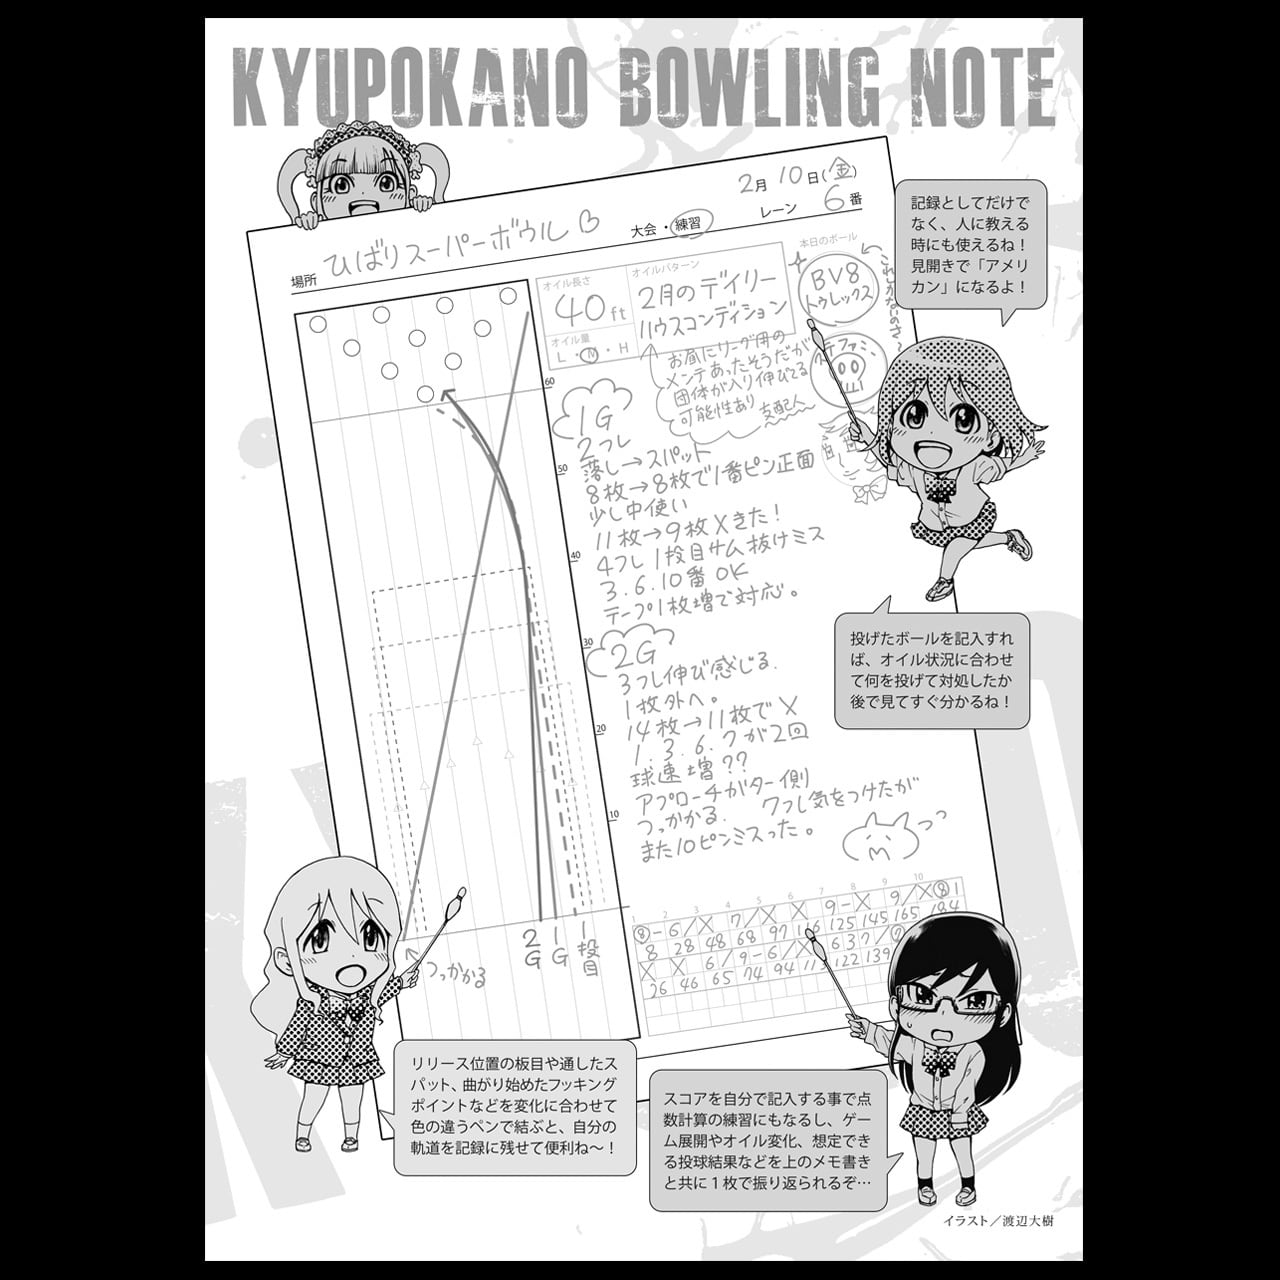 KYUPOKANO BOWLING NOTE
2月 10日(金)
場所 ひばりスーパーボウル
大会・練習
レーン 6番
オイル長さ
40ft
オイルパターン
2月のデイリー
ハウスコンディション
オイル量
L・M・H
本日のボール
BV8
トゥレックス
お昼にリーグ用の
メンテあったそうだが
団体が入り伸びてる
可能性あり 支配人
1G
2フレ
落し→スパット
8枚→8枚で1番ピン正面
少し中使い
11枚→9枚Xきた!
4フレ1投目サム抜けミス
3.6.10番OK
テープ1枚増で対応。
2G
3フレ伸び感じる.
1枚外へ。
14枚→11枚でX
1.3.6.7が2回
球速増??
アプローチガター側
つっかかる. 7フレ気をつけたが
また10ピンミスった。
つっ
60
50
40
30
20
10
2G
1G
1投目
つっかかる
1 2 3 4 5 6 7 8 9 10
⑧ - 6 / X 7 / X X 9 - X 9 / X ⑧ 1
8 28 48 68 97 116 125 145 165 184
X X 6 / 9 - 6 / X
26 46 65 74 94 122 139
記録としてだけで
なく、人に教える
時にも使えるね!
見開きで「アメリ
カン」になるよ!
投げたボールを記入すれ
ば、オイル状況に合わせ
て何を投げて対処したか
後で見てすぐ分かるね!
リリース位置の板目や通したス
パット、曲がり始めたフッキング
ポイントなどを変化に合わせて
色の違うペンで結ぶと、自分の
軌道を記録に残せて便利ね〜!
スコアを自分で記入する事で点
数計算の練習にもなるし、ゲー
ム展開やオイル変化、想定でき
る投球結果などを上のメモ書き
と共に1枚で振り返られるぞ…
イラスト／渡辺大樹